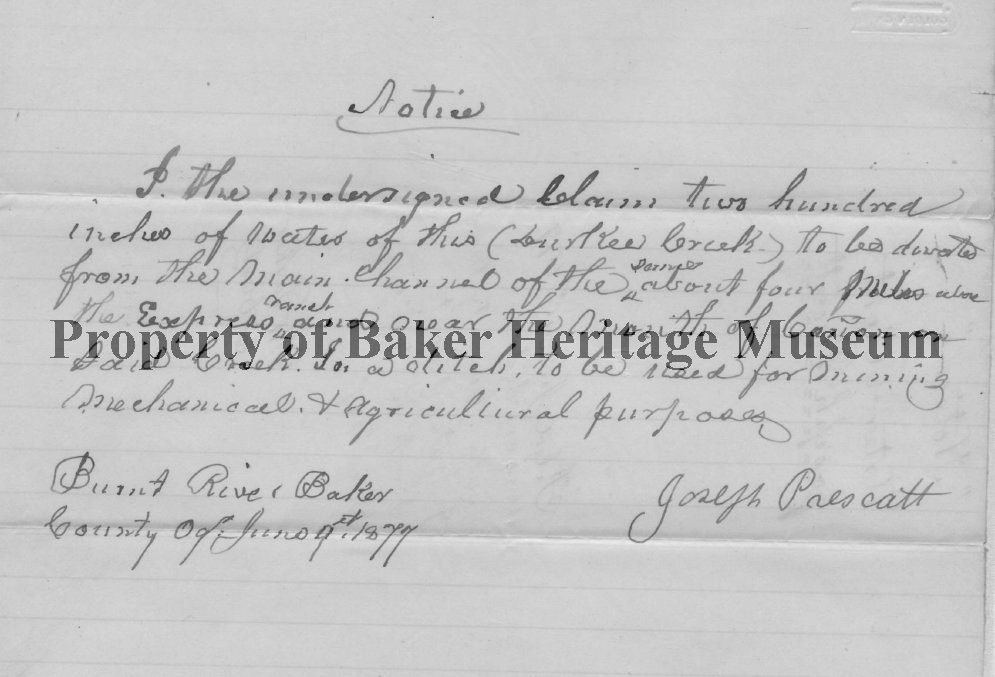 Notice
I. the undersigned Claim two hundred
inches of water of this (Durkee Creek.) to be diverted
from the Main Channel of the same about four Miles above
the Express ranch and near the Mouth of Cañon on
Said Creek. In a ditch, to be used for Mining
Mechanical. & Agricultural purposes
Burnt River Baker
County Og. June 9th. 1877
Joseph Prescott
Property of Baker Heritage Museum